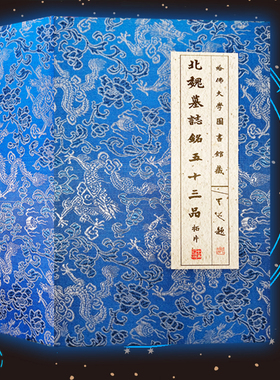 哈佛大學圖書館藏
北魏墓誌銘五十三品
拓片